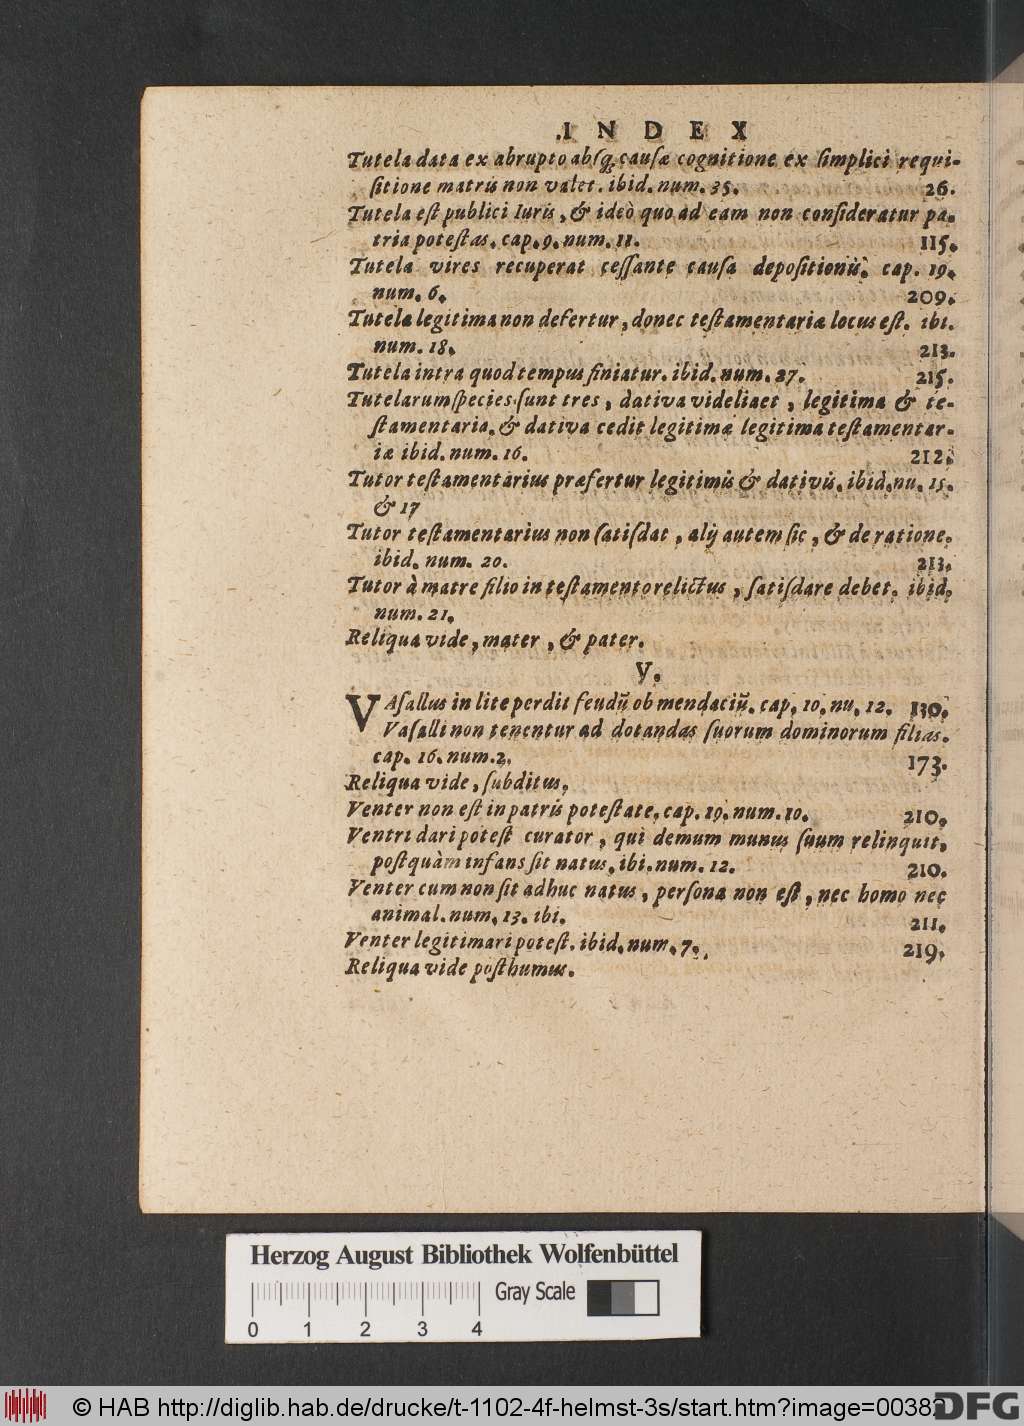 .I N D E X
Tutela data ex abrupto absq; causæ cognitione ex simplici requi-
sitione matris non valet. ibid. num. 35. 26.
Tutela est publici Iuris, & ideò quo ad eam non consideratur pa-
tria potestas. cap. 9. num. 11. 115.
Tutela vires recuperat cessante causa depositionis. cap. 19.
num. 6. 209.
Tutela legitima non defertur, donec testamentariæ locus est. ibi.
num. 18. 213.
Tutela intra quod tempus finiatur. ibid. num. 27. 215.
Tutelarum species sunt tres, dativa videliaet, legitima & te-
stamentaria. & dativa cedit legitimæ legitima testamentar-
iæ ibid. num. 16. 212.
Tutor testamentarius præfertur legitimis & dativis. ibid. nu. 15.
& 17
Tutor testamentarius non satisdat, alij autem sic, & de ratione.
ibid. num. 20. 213.
Tutor à matre filio in testamento relictus, satisdare debet. ibid.
num. 21.
Reliqua vide, mater, & pater.
V.
VAsallus in lite perdit feudũ ob mendaciũ. cap. 10. nu. 12. 130.
Vasalli non tenentur ad dotandas suorum dominorum filias.
cap. 16. num. 2. 173.
Reliqua vide, subditus.
Venter non est in patris potestate, cap. 19. num. 10. 210.
Ventri dari potest curator, qui demum munus suum relinquit,
postquàm infans sit natus, ibi. num. 12. 210.
Venter cum non sit adhuc natus, persona non est, nec homo nec
animal. num. 13. ibi. 211.
Venter legitimari potest. ibid. num. 7. 219.
Reliqua vide posthumus.
Herzog August Bibliothek Wolfenbüttel
Gray Scale
0 1 2 3 4
© HAB http://diglib.hab.de/drucke/t-1102-4f-helmst-3s/start.htm?image=00382
DFG